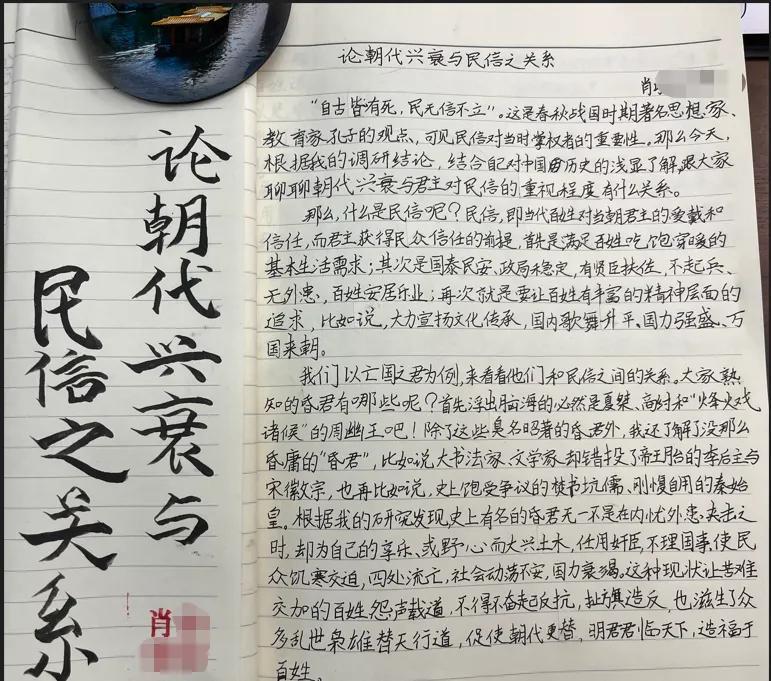 论朝代兴衰与
民信之关系
肖
论朝代兴衰与民信之关系
肖
“自古皆有死，民无信不立”。这是春秋战国时期著名思想家、
教育家孔子的观点，可见民信对当时掌权者的重要性，那么今天，
根据我的调研结论，结合自己对中国历史的浅显了解，跟大家
聊聊朝代兴衰与君主对民信的重视程度有什么关系。
那么，什么是民信呢？民信，即当代百姓对当朝君主的爱戴和
信任，而君主获得民众信任的前提，首先是满足百姓吃饱穿暖的
基本生活需求；其次是国泰民安、政局稳定，有贤臣扶佐，不起兵、
无外患，百姓安居乐业；再次就是要让百姓有丰富的精神层面的
追求，比如说，大力宣扬文化传承，国内歌舞升平、国力强盛、万
国来朝。
我们以亡国之君为例，来看看他们和民信之间的关系。大家熟
知的昏君有哪些呢？首先浮出脑海的必然是夏桀、商纣和“烽火戏
诸侯”的周幽王吧！除了这些臭名昭著的昏君外，我还了解了没那么
昏庸的“昏君”，比如说大书法家、文学家却错投了帝王胎的李后主与
宋徽宗，也再比如说，史上饱受争议的焚书坑儒、刚愎自用的秦始
皇。根据我的研究发现，史上有名的昏君无一不是在内忧外患夹击之
时，却为自己的享乐、或野心而大兴土木，任用奸臣，不理国事，使民
众饥寒交迫，四处流亡，社会动荡不安，国力衰竭。这种现状让苦难
交加的百姓怨声载道，不得不奋起反抗，扯旗造反，也滋生了众
多乱世枭雄替天行道，促使朝代更替，明君君临天下，造福于
百姓。